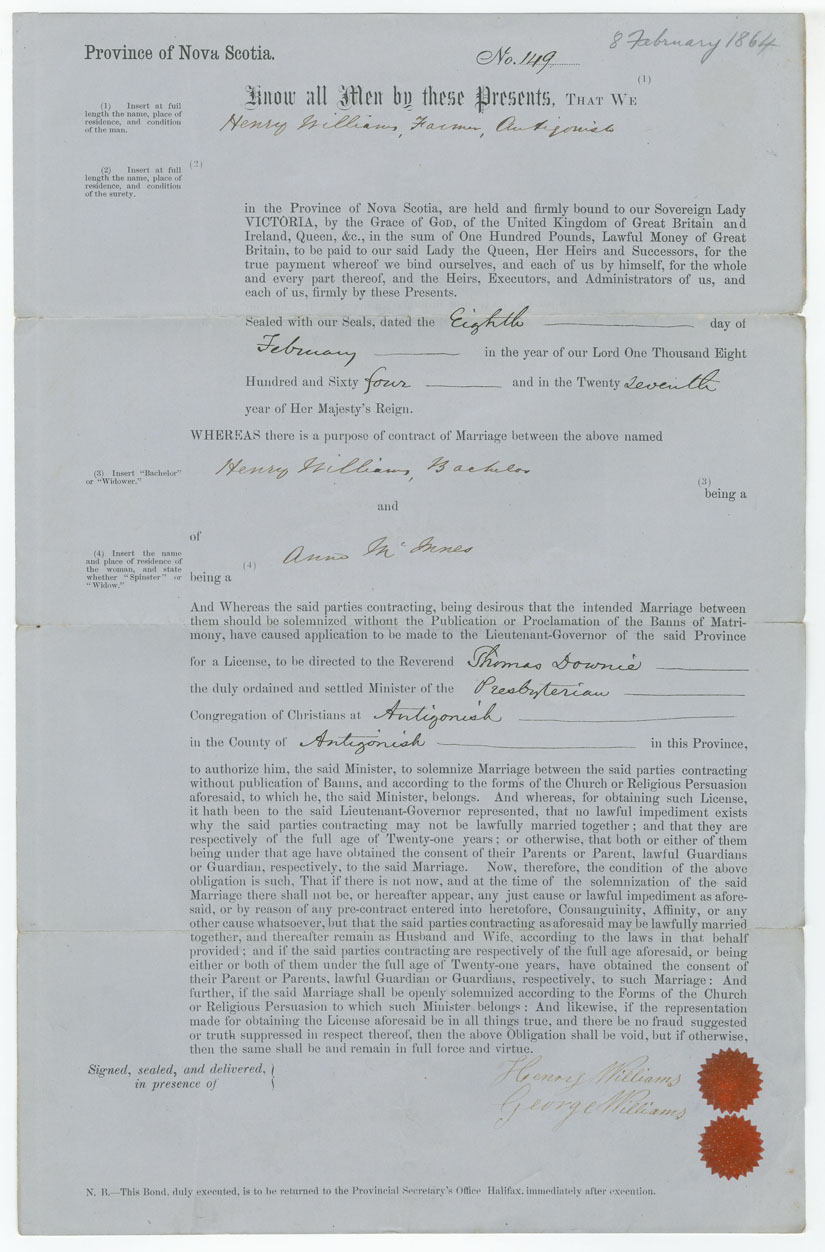 8 February 1864
Province of Nova Scotia.
No. 149
(1)
Know all Men by these Presents, THAT WE
(1) Insert at full
length the name, place of
residence, and condition
of the man.
Henry Williams, Farmer, Antigonish
(2) Insert at full
length the name, place of
residence, and condition
of the surety.
(2)
in the Province of Nova Scotia, are held and firmly bound to our Sovereign Lady
VICTORIA, by the Grace of GOD, of the United Kingdom of Great Britain and
Ireland, Queen, &c., in the sum of One Hundred Pounds, Lawful Money of Great
Britain, to be paid to our said Lady the Queen, Her Heirs and Successors, for the
true payment whereof we bind ourselves, and each of us by himself, for the whole
and every part thereof, and the Heirs, Executors, and Administrators of us, and
each of us, firmly by these Presents.
Sealed with our Seals, dated the Eighth day of
February in the year of our Lord One Thousand Eight
Hundred and Sixty four and in the Twenty seventh
year of Her Majesty's Reign.
WHEREAS there is a purpose of contract of Marriage between the above named
(3) Insert "Bachelor"
or "Widower."
Henry Williams, Bachelor
(3)
being a
and
of
(4) Insert the name
and place of residence of
the woman, and state
whether "Spinster" or
"Widow."
Anne McInnes
(4)
being a
And Whereas the said parties contracting, being desirous that the intended Marriage between
them should be solemnized without the Publication or Proclamation of the Banns of Matri-
mony, have caused application to be made to the Lieutenant-Governor of the said Province
for a License, to be directed to the Reverend Thomas Downie
the duly ordained and settled Minister of the Presbyterian
Congregation of Christians at Antigonish
in the County of Antigonish in this Province,
to authorize him, the said Minister, to solemnize Marriage between the said parties contracting
without publication of Banns, and according to the forms of the Church or Religious Persuasion
aforesaid, to which he, the said Minister, belongs. And whereas, for obtaining such License,
it hath been to the said Lieutenant-Governor represented, that no lawful impediment exists
why the said parties contracting may not be lawfully married together; and that they are
respectively of the full age of Twenty-one years; or otherwise, that both or either of them
being under that age have obtained the consent of their Parents or Parent, lawful Guardians
or Guardian, respectively, to the said Marriage. Now, therefore, the condition of the above
obligation is such, That if there is not now, and at the time of the solemnization of the said
Marriage there shall not be, or hereafter appear, any just cause or lawful impediment as afore-
said, or by reason of any pre-contract entered into heretofore, Consanguinity, Affinity, or any
other cause whatsoever, but that the said parties contracting as aforesaid may be lawfully married
together, and thereafter remain as Husband and Wife, according to the laws in that behalf
provided; and if the said parties contracting are respectively of the full age aforesaid, or being
either or both of them under the full age of Twenty-one years, have obtained the consent of
their Parent or Parents, lawful Guardian or Guardians, respectively, to such Marriage: And
further, if the said Marriage shall be openly solemnized according to the Forms of the Church
or Religious Persuasion to which such Minister belongs: And likewise, if the representation
made for obtaining the License aforesaid be in all things true, and there be no fraud suggested
or truth suppressed in respect thereof, then the above Obligation shall be void, but if otherwise,
then the same shall be and remain in full force and virtue.
Signed, sealed, and delivered,
in presence of
Henry Williams
George Williams
N. B.—This Bond, duly executed, is to be returned to the Provincial Secretary's Office Halifax, immediately after execution.